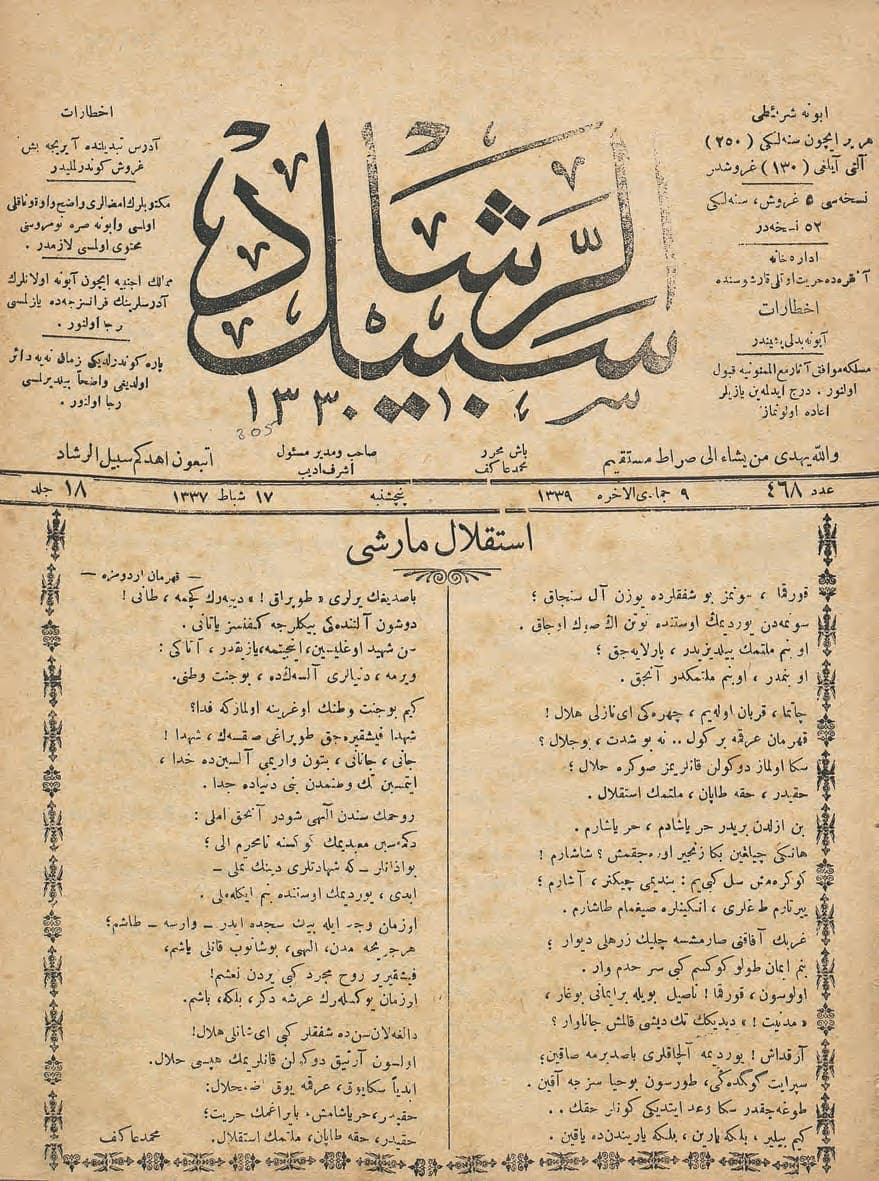 اخطارات
آدرس تبدیلنده آیریجه بش
غروش کوندرلملیدر
مکتوبلرك امضالری واضح و اوقوناقلی
اولمسی وابونه صره نومروسنی
محتوی اولمسی لازمدر .
ممالك اجنبیه ایچون آبونه اولانلرك
آدرسلرینك فرانسزجه‌ده یازلمسی
رجا اولنور .
پاره کوندرلدیکی زمان نه‌یه دائر
اولدیغی واضحاً بیلدیرلمسی
رجا اولنور .
سبیل الرشاد
١٣٣٠
305
ابونه شرائطی
هر یر ایچون سنه‌لکی (٢٥٠)
آلتی آیلغی (١٣٠) غروشدر
نسخه‌سی ٥ غروش، سنه‌لکی
٥٢ نسخه‌در
اداره‌خانه
آنقره‌ده حریت اوتلی قارشوسنده
اخطارات
آبونه بدلی پشیندر
مسلکه موافق آثار مع الممنونیه قبول
اولنور . درج ایدلمه‌ین یازیلر
اعاده اولونماز
والله یهدی من یشاء الی صراط مستقیم
باش محرر
محمد عاکف
صاحب ومدیر مسئول
اشرف ادیب
اتبعون اهدکم سبیل الرشاد
عدد ٤٦٨
٩ جمادی الاخره ١٣٣٩
پنجشنبه
١٧ شباط ١٣٣٧
جلد ١٨
استقلال مارشی
— قهرمان اردومزه —
قورقما ، سونمز بو شفقلرده یوزن آل سنجاق ؛
سونمه‌دن یوردیمك اوستنده توتن اڭ صوڭ اوجاق .
او بنم ملتمك ییلدیزیدر ، پارلایه‌جق ؛
او بنمدر ، او بنم ملتمکدر آنجق .
چاتما ، قربان اوله‌یم ، چهره‌کی ای نازلی هلال !
قهرمان عرقمه بر کول .. نه بو شدت ، بو جلال ؟
سکا اولماز دوکولن قانلریمز صوکره حلال ؛
حقیدر ، حقه طاپان ، ملتمك استقلال .
بن ازلدن بریدر حر یاشادم ، حر یاشارم .
هانکی چیلغین بکا زنجیر اوره‌جقمش ؟ شاشارم !
کوکره‌مش سل کبی‌یم : بندیمی چیکنر ، آشارم ؛
ییرتارم طاغلری ، انکینلره صیغمام طاشارم .
غربك آفاقنی صارمشسه چلیك زرهلی دیوار ؛
بنم ایمان طولو کوکسم کبی سر حدم وار .
اولوسون ، قورقما ! ناصیل بویله بر ایمانی بوغار ،
« مدنیت ! » دیدیکك تك دیشی قالمش جاناوار ؟
آرقداش ! یوردیمه آلچاقلری باصدیرمه صاقین؛
سپر ایت کوگده‌کی، طورسون بو حیا سزجه آقین .
طوغه‌جقدر سکا وعد ایتدیکی کونلر حقك . .
کیم بیلیر ، بلکه یارین ، بلکه یاریندن‌ده یاقین .
باصدیغك یرلری « طوپراق ! » دییه‌رك کچمه ، طانی !
دوشون آلتنده‌کی بیکلرجه کفنسز یاتانی .
سن شهید اوغلیسین، اینجیتمه، یازیقدر ، آتاکی :
ویرمه ، دنیالری آلسه‌ڭده ، بو جنت وطنی.
کیم بو جنت وطنك اوغرینه اولمازکه فدا؟
شهدا فیشقیره‌جق طوپراغی صقسه‌ڭ ، شهدا !
جانی ، جانانی ، بتون واریمی آلسین‌ده خدا ،
ایتمسین تك وطنمدن بنی دنیاده جدا .
روحمك سندن آلهی شودر آنجق املی :
دکمسین معبدیمك کوکسنه نامحرم الی ؛
بو اذانلر — که شهادتلری دینك تملی —
ابدی ، یوردیمك اوستنده بنم ایکله‌ملی .
او زمان وجد ایله بیك سجده ایدر — وارسه — طاشم؛
هر جریحه مدن، الهی، بوشانوب قانلی یاشم،
فیشقیریر روح مجرد کبی یردن نعشم!
او زمان یوکسله‌رك عرشه دکر، بلکه، باشم.
دالغه‌لان سن‌ده شفقلر کبی ای شانلی هلال!
اولسون آرتیق دوکولن قانلریمك هپسی حلال.
ابدیاً سکا یوق، عرقمه یوق اضمحلال:
حقیدر، حر یاشامش، بایراغمك حریت؛
حقیدر، حقه طاپان، ملتمك استقلال.
محمد عاکف